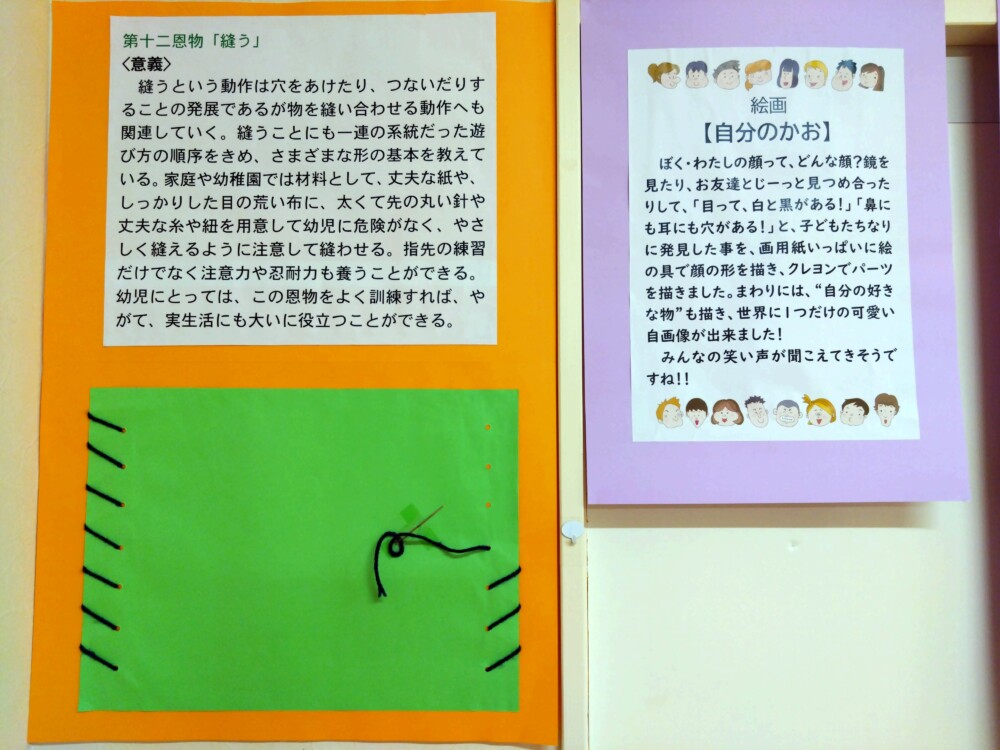 第十二恩物「縫う」
〈意義〉
縫うという動作は穴をあけたり、つないだりす
ることの発展であるが物を縫い合わせる動作へも
関連していく。縫うことにも一連の系統だった遊
び方の順序をきめ、さまざまな形の基本を教えて
いる。家庭や幼稚園では材料として、丈夫な紙や、
しっかりした目の荒い布に、太くて先の丸い針や
丈夫な糸や紐を用意して幼児に危険がなく、やさ
しく縫えるように注意して縫わせる。指先の練習
だけでなく注意力や忍耐力も養うことができる。
幼児にとっては、この恩物をよく訓練すれば、や
がて、実生活にも大いに役立つことができる。
絵画
【自分のかお】
ぼく・わたしの顔って、どんな顔?鏡を
見たり、お友達とじーっと見つめ合った
りして、「目って、白と黒がある!」「鼻に
も耳にも穴がある!」と、子どもたちなり
に発見した事を、画用紙いっぱいに絵
の具で顔の形を描き、クレヨンでパーツ
を描きました。まわりには、“自分の好き
な物”も描き、世界に1つだけの可愛い
自画像が出来ました!
みんなの笑い声が聞こえてきそうで
すね!!